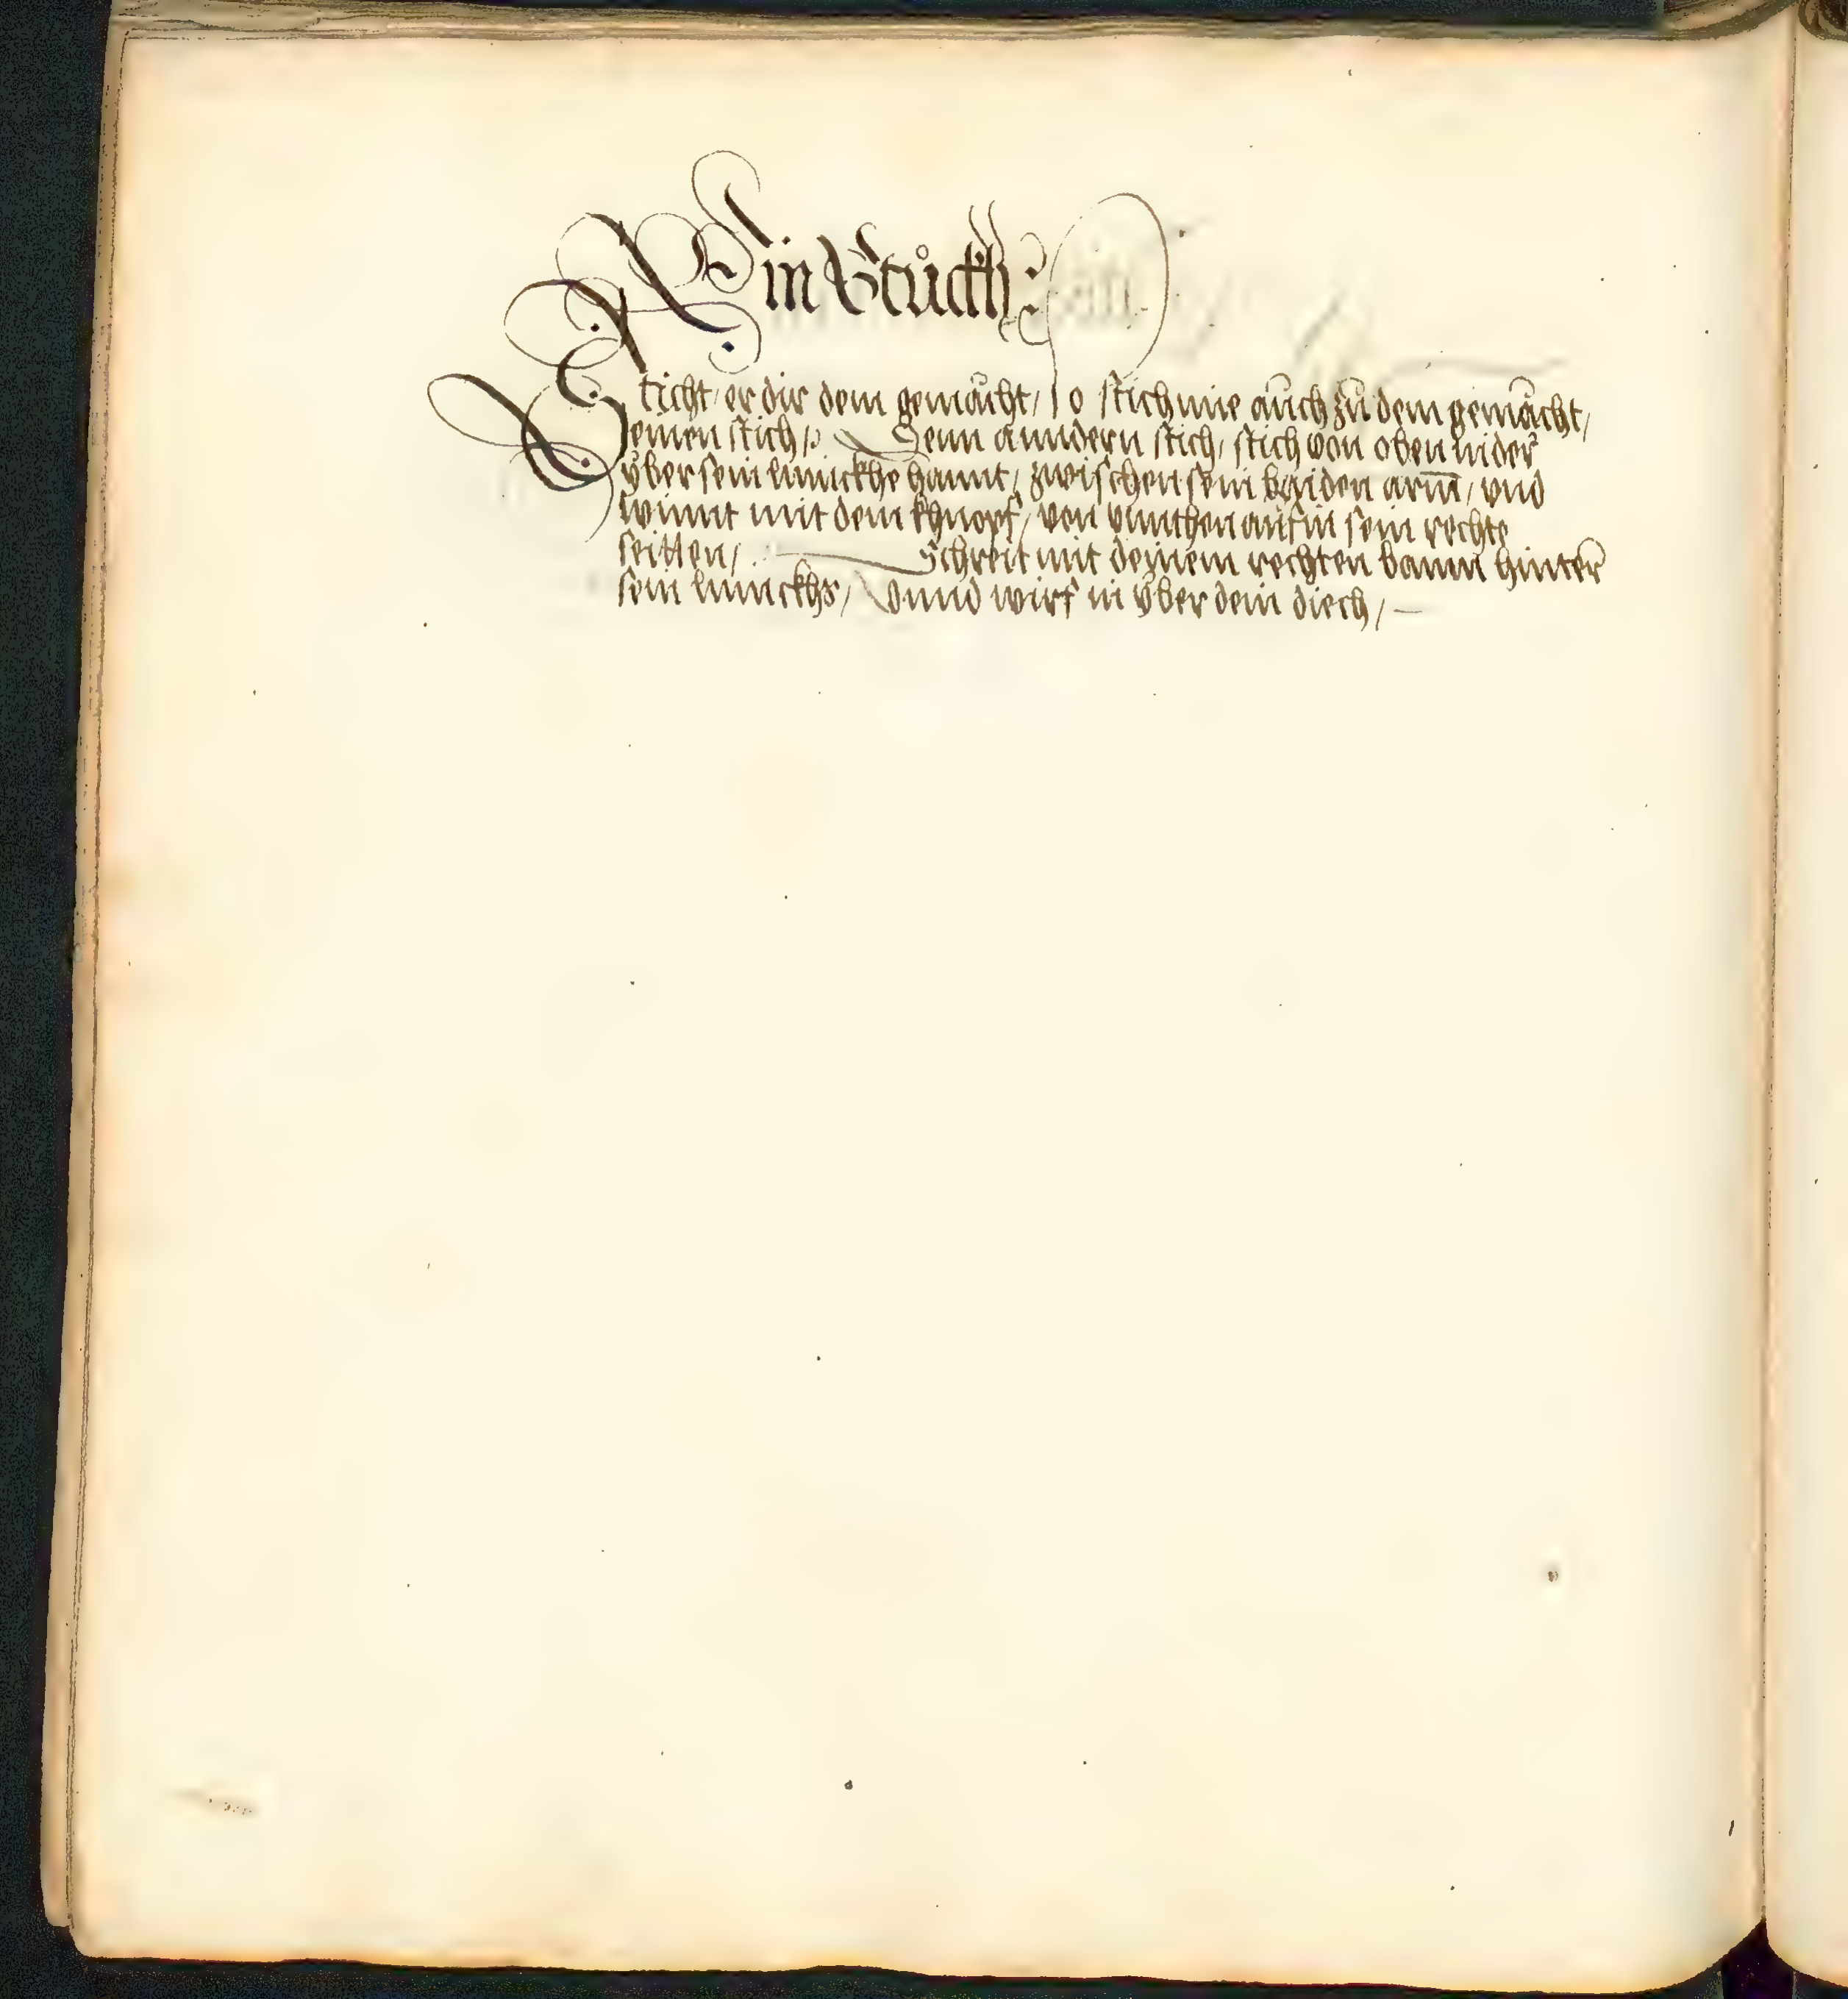 Ain Stuckh
Sticht er dir dem gemåcht, so stich nùe auch zu dem gemåcht,
einen stich, Denn anndern stich, stich von oben nider
ÿber sein linnckhe hannt, zwischen sein baiden arm̄, vnd
winnt mit dem khnopf, von vnnthen auf in sein rechte
seitten, Schreit mit deinem rechten bainn hinter
sein linnckhs, Vnnd wirf in ÿber dein diech,